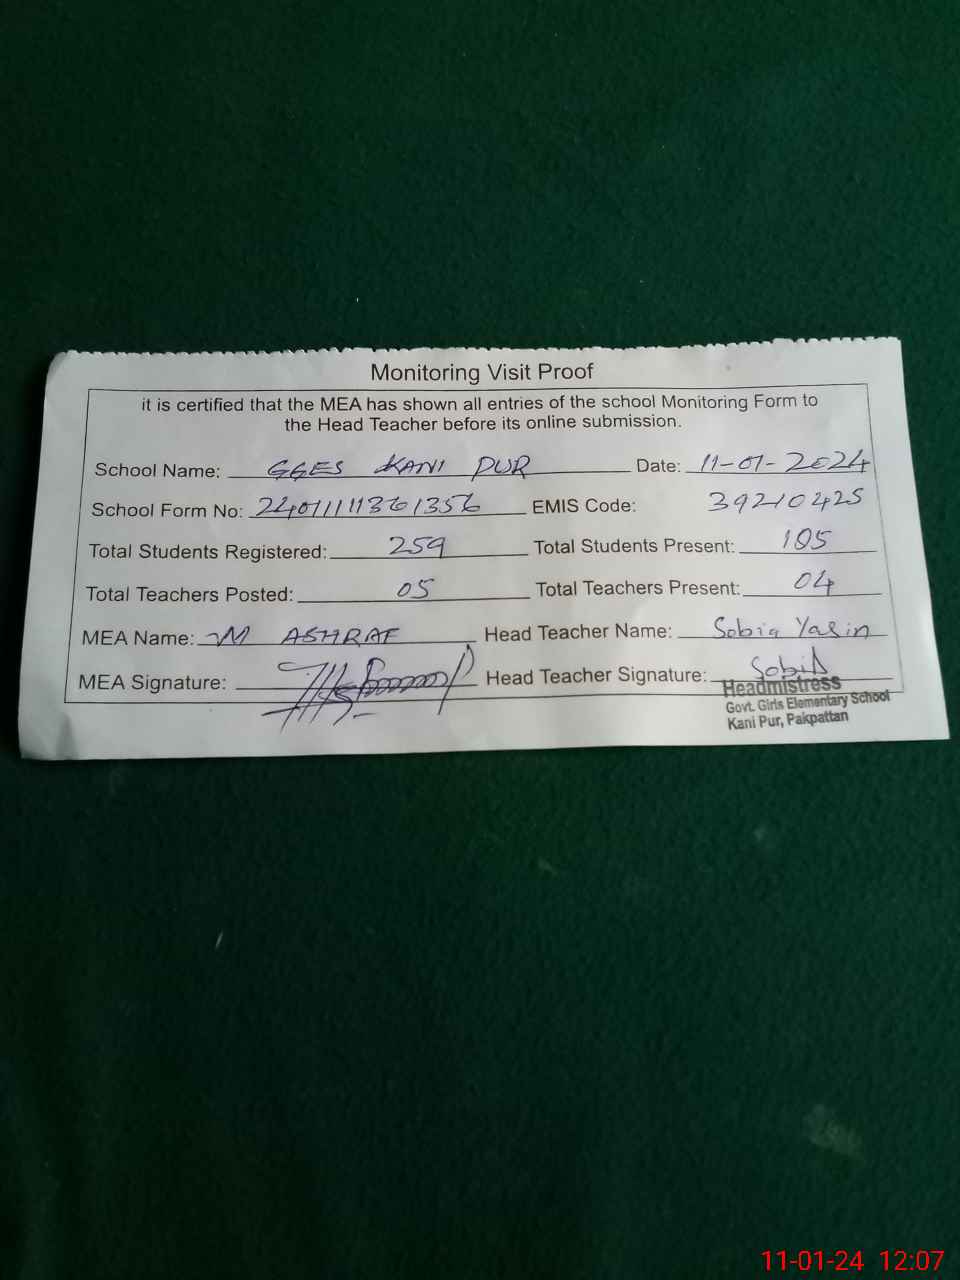 Monitoring Visit Proof
it is certified that the MEA has shown all entries of the school Monitoring Form to
the Head Teacher before its online submission.
School Name: GGES KANI PUR Date: 11-01-2024
School Form No: 2401111361356 EMIS Code: 39210425
Total Students Registered: 259 Total Students Present: 105
Total Teachers Posted: 05 Total Teachers Present: 04
MEA Name: M ASHRAF Head Teacher Name: Sobia Yasin
MEA Signature: Head Teacher Signature: Sobia
Headmistress
Govt. Girls Elementary School
Kani Pur, Pakpattan
11-01-24 12:07